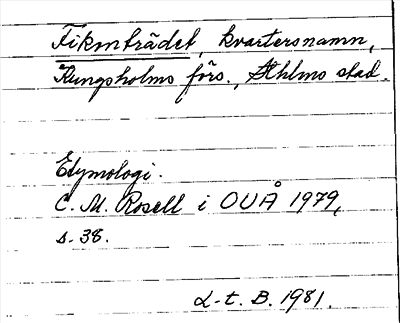 Fikonträdet, kvartersnamn,
Kungsholms förs., Sthlms stad.
Etymologi.
C. M. Rosell i OUÅ 1979,
s. 38.
L-t. B. 1981.